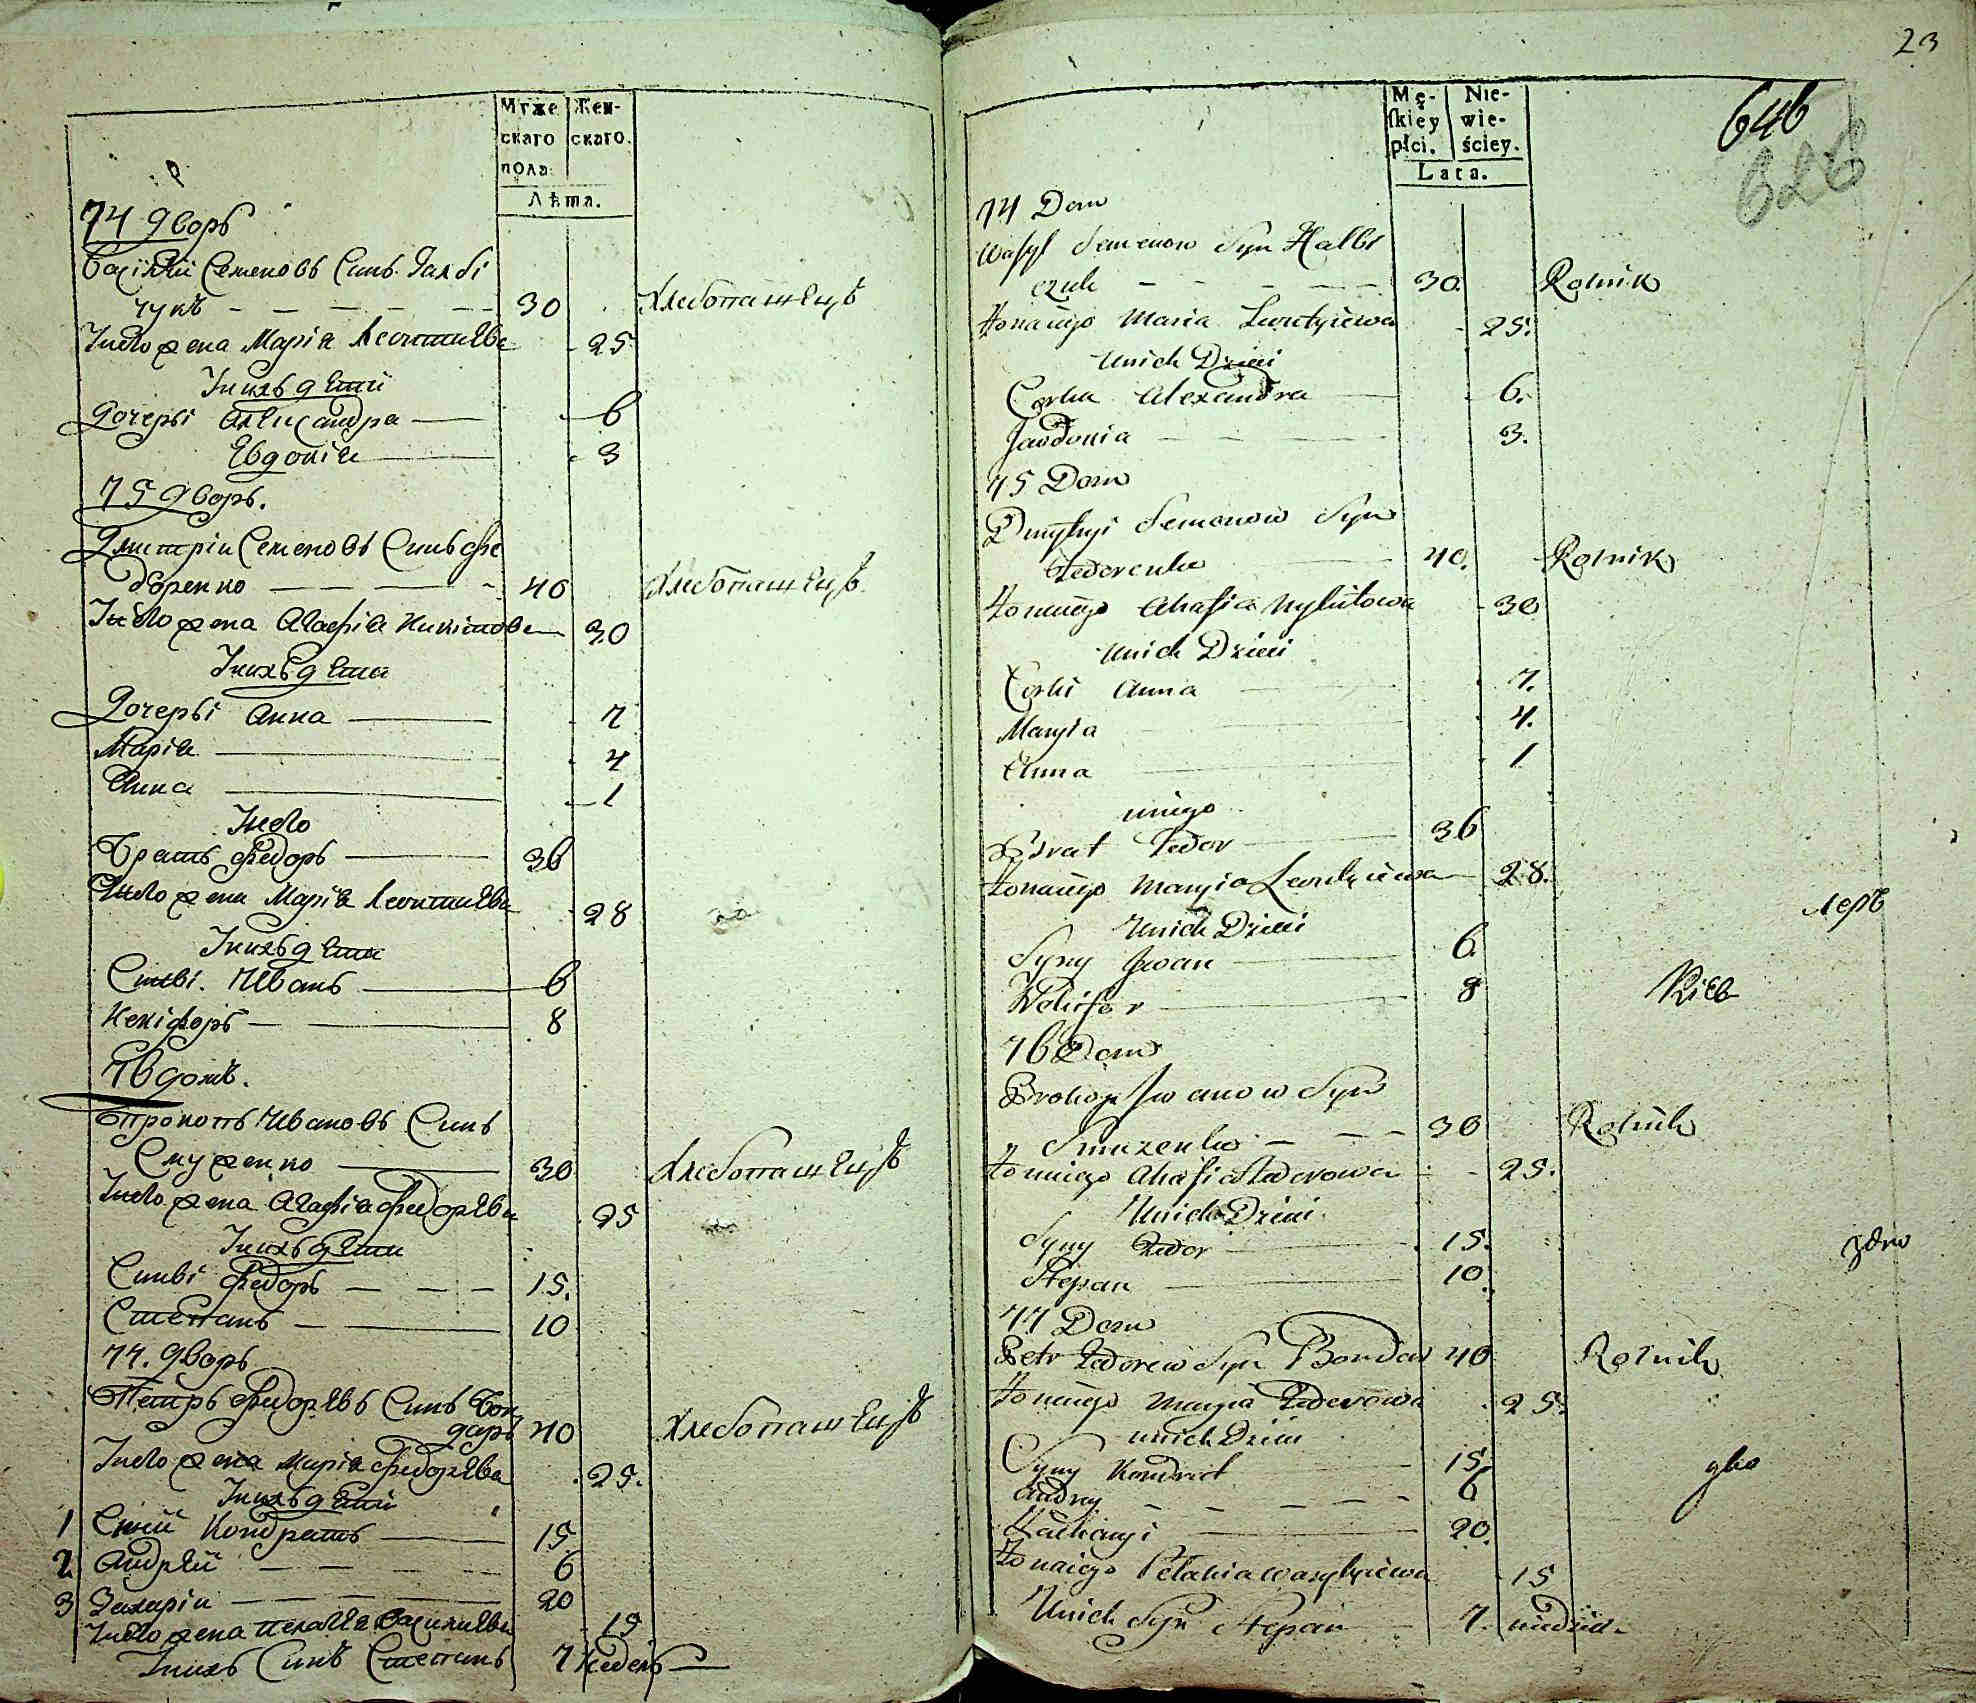 Мꙋже
скаго
пола.
Жен-
скаго.
Лѣта.
74 дворъ
Василій Семеновъ Синъ Галбі
чукъ 30 Хлебопашецъ
Унего жена Марія Леонтиева 25
Унихъ дети
Дочери Александра 6
Евдокія 3
75 дворъ.
Дмитрій Семеновъ Синъ Фе
доренко 40 Хлебопашецъ
Унего жена Агафія Никитова 30
Унихъ дети
Дочери Анна 7
Марія 4
Анна 1
Унего
Братъ Федоръ 36
Унего жена Марія Леонтиева 28
Унихъ дети
Синві. Иванъ 6
Некіфоръ 8
76 домъ.
Прокопъ Ивановъ Синъ
Смуженко 30 Хлебопашецъ
Унего жена Агафія Федорева 25
Унихъ дети
Синві Федоръ 15.
Степанъ 10
77. дворъ
Петръ Федоревъ Синъ Бон
даръ 40 Хлебопашецъ
Унего жена Марія Федорева 25.
Унихъ дети
1 Кондратъ 15
2 Андрей 6
3 Захарій 20
Унего жена Пелагея Василиева 15
Унихъ Синъ Степанъ 7 недель
23
646
626
Mę-
ſkiey
płci.
Nie-
wie-
ściey.
Lata.
74 Dom
Wasyl Semenow Syn Halbi
czuk 30. Rolnik
Żona iego Maria Leontyiewa 25.
Unich Dzieci
Corka Alexandra 6.
Jawdokia 3.
75 Dom
Dmytryi Semenow Syn
Fedorenko 40. Rolnik
Żona iego Ahafia Nykitowa 30
Unich Dzieci
Corki Anna 7.
Maryia 4.
Anna 1
uniego
Brat Fedor 36
Żona iego Maryia Leontyiewa 28.
Unich Dzieci
Syny Jwan 6.
8
76 Dom
Prokop Jwanow Syn
Smuzenko 30 Rolnik
Żona iego Ahafia Fedorowa 25.
Unich Dzieci
Syny Fedor 15.
Stepan 10
77 Dom
Petr Fedorow Syn Bondar 40 Rolnik
Żona iego Maryia Fedorowa 25.
unich Dzieci
Syny Kondrat 15.
Andrey 6
20.
Żona iego Pelahia Wasylyiewa 15
Unich Syn Stepan 7. niedziel.